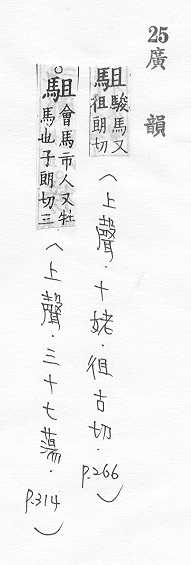 25
廣韻
駔
駿馬又
祖朗切
(上聲．十姥．徂古切．p.266)
○駔
會馬市人又牡
馬也子朗切三
(上聲．三十七蕩．p.314)